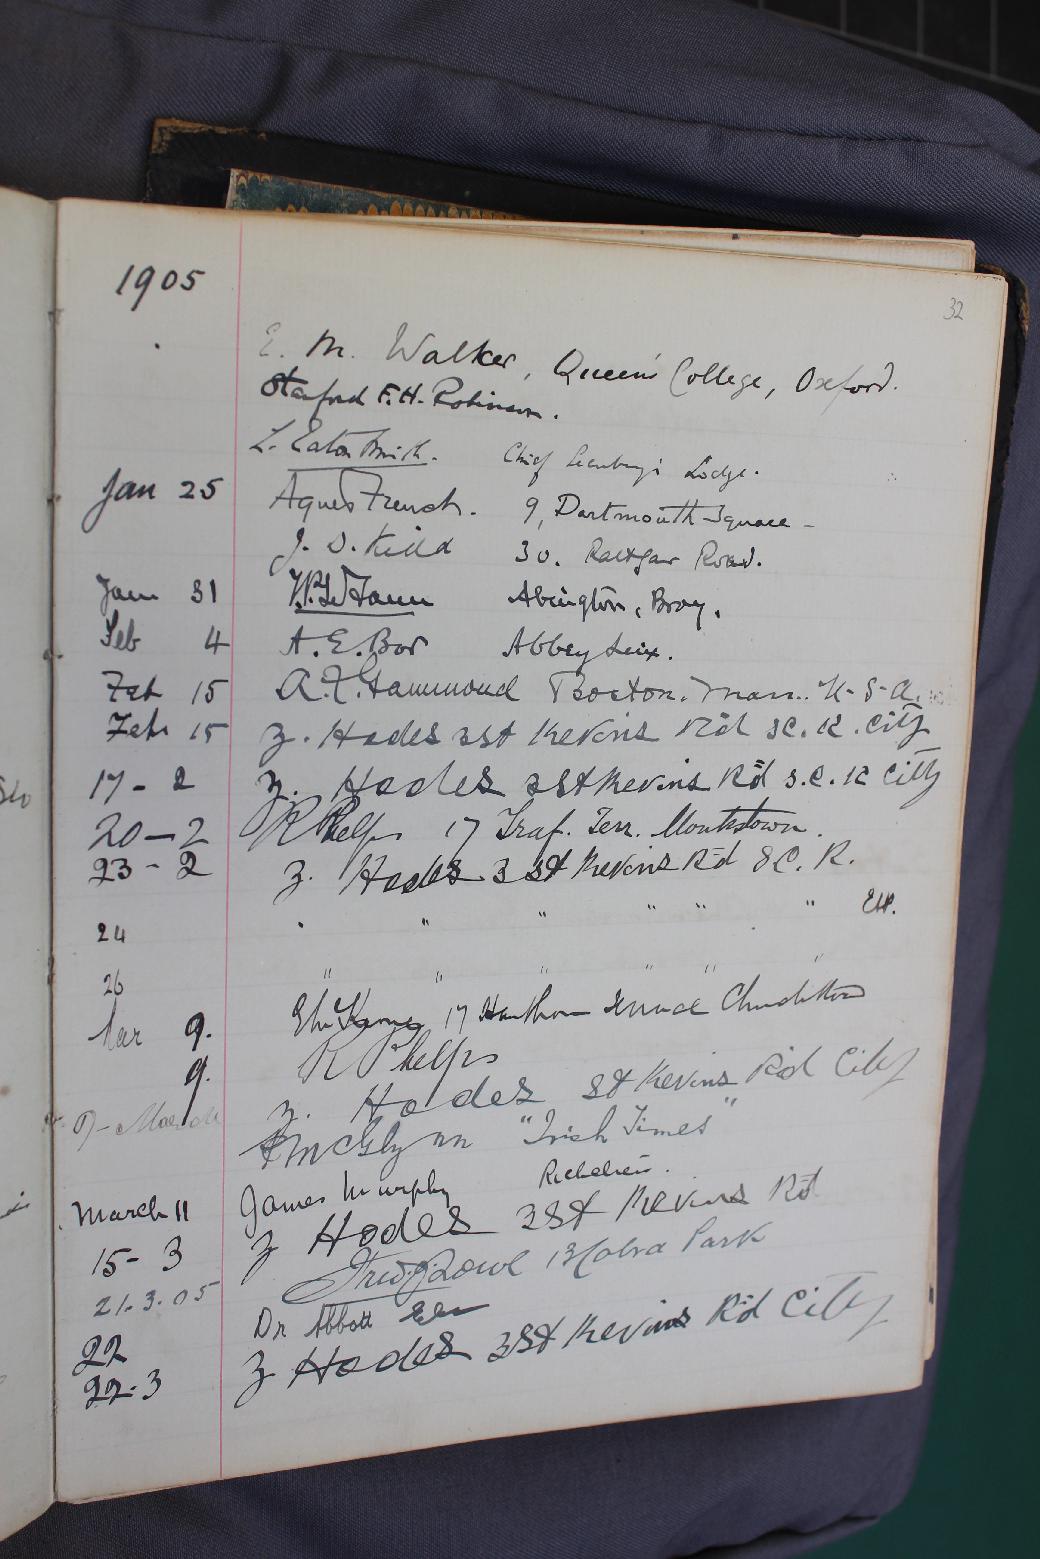 32
1905
E. M. Walker, Queen's College, Oxford.
Stanford F.H. Robinson.
L. Eaton Smith. Chief Lodge.
Jan 25 Agnes French. 9, Dartmouth Square -
J. D. Kidd 30. Rathgar Road.
Jan 31 Abington, Bray.
Feb 4 A. E. Bor Abbey Leix.
Feb 15 A. F. Hammond Boston. Mass. U-S-A.
Feb 15 Z. Hodes 3 St Kevins Rd S.C.R. City
17-2 Z. Hodes 3 St Kevins Rd S.C.R City
20-2 R Phelps 17 Traf. Terr. Monkstown.
23-2 Z. Hodes 3 St Kevins Rd S.C.R.
24 " " " " " "
26 " " " " " "
Mar 9. 17 Hawthorn
9. R Phelps
9- March Z. Hodes St Kevins Rd City
McGlynn "Irish Times"
March 11 James Murphy
15-3 Z Hodes 3 St Kevins Rd
21.3.05 Park
22 Dr Abbott
22-3 Z Hodes 3 St Kevins Rd City